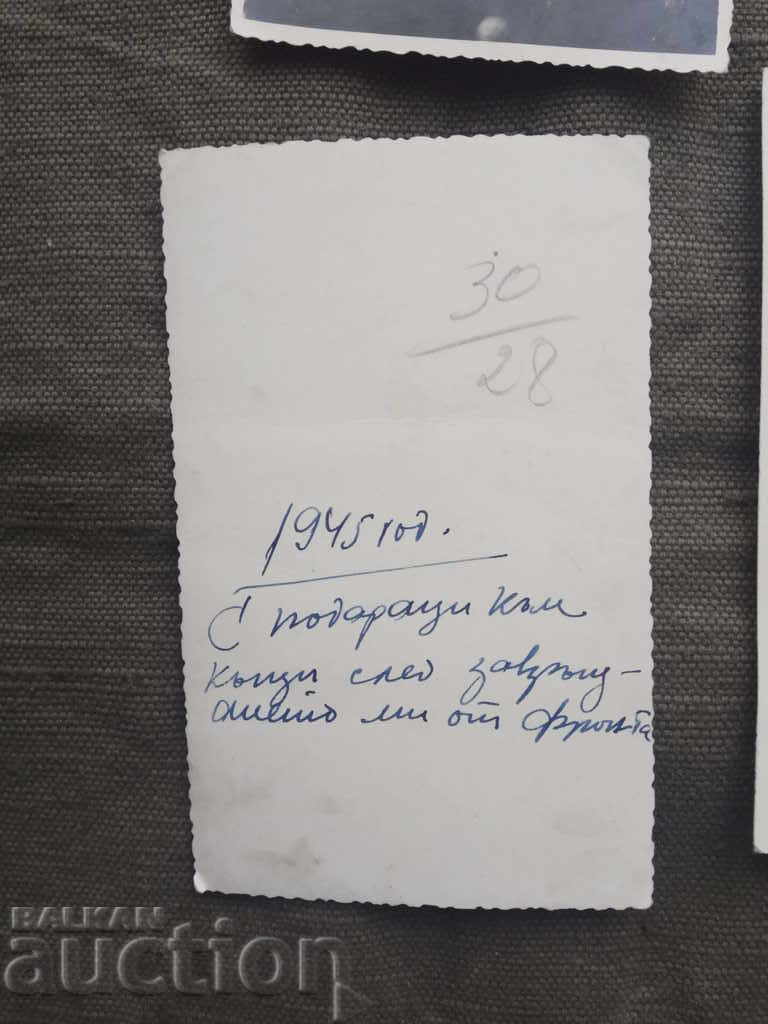 30
28
1945 год.
С подараци към
къщи след завръщ-
анието ми от фронта
BALKAN
auction